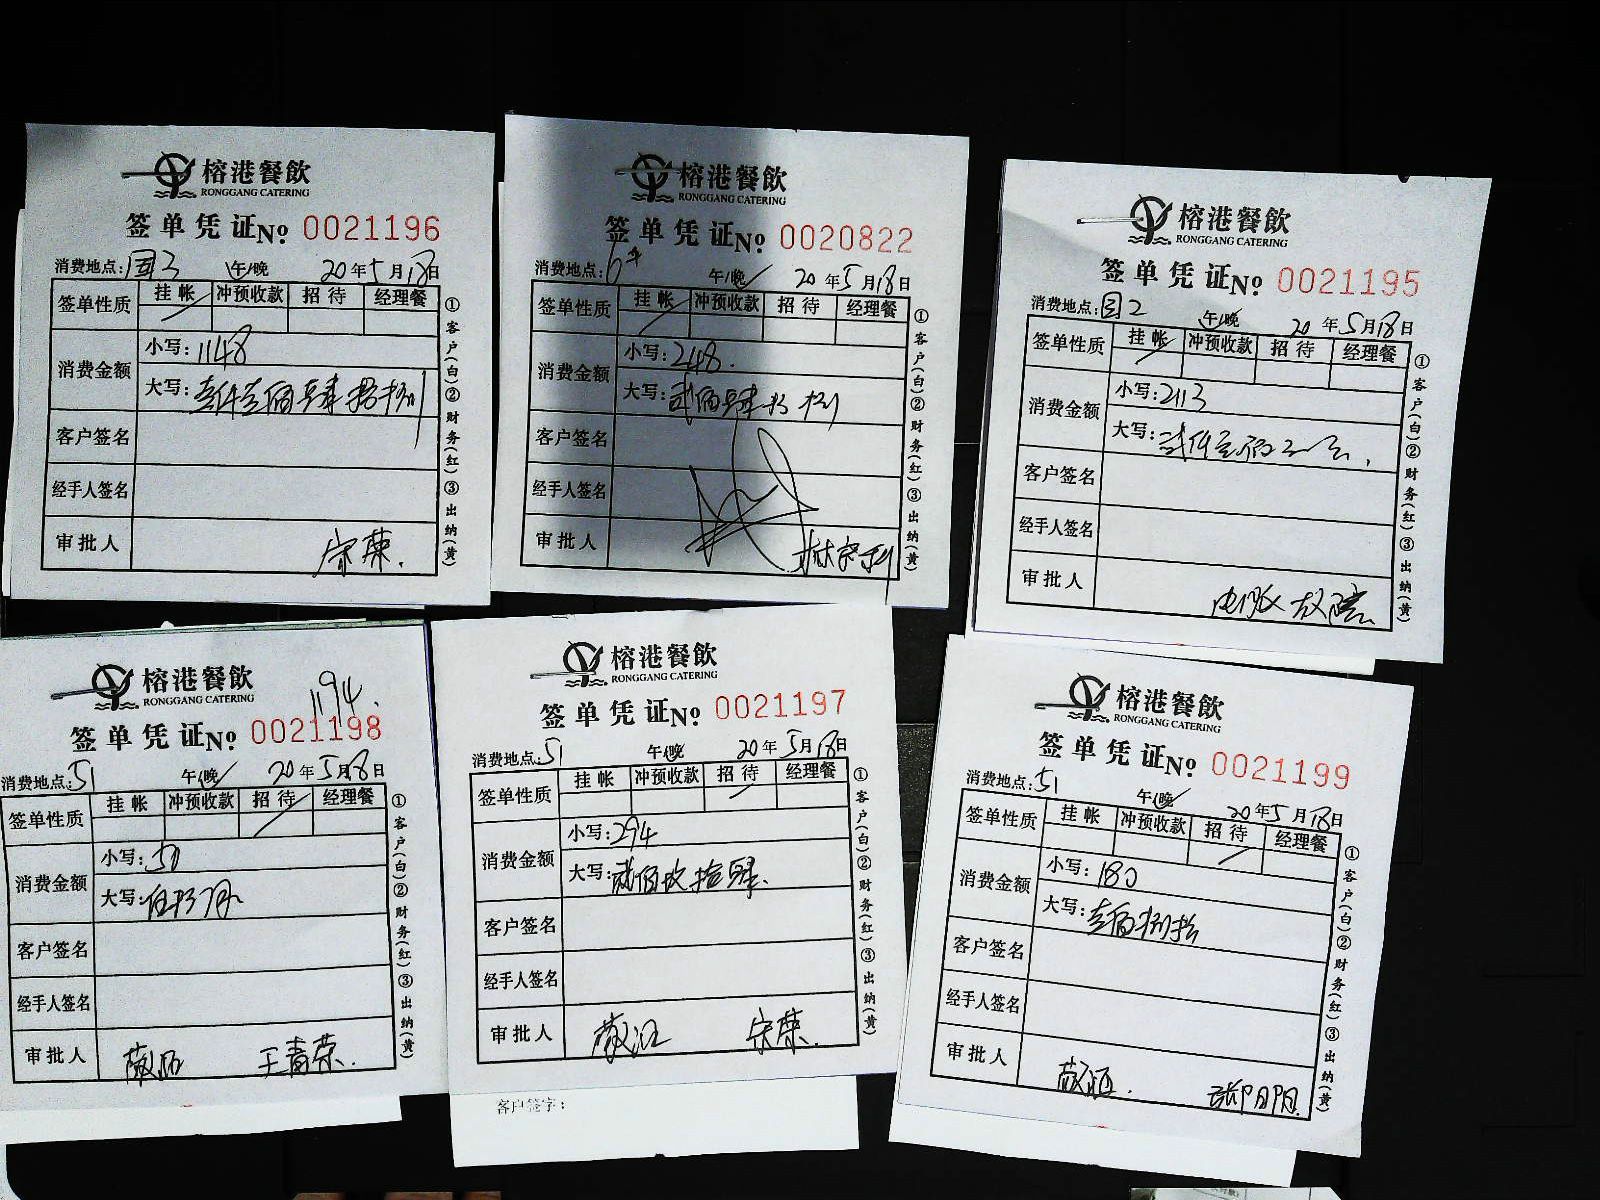 榕港餐飲
RONGGANG CATERING
签单凭证No. 0021196
消费地点: 国3 午/晚 20年5月18日
签单性质 挂帐 冲预收款 招待 经理餐
消费金额 小写: 1148
大写: 壹仟壹佰肆拾捌
客户签名
经手人签名
审批人 宋荣.
①客户(白)②财务(红)③出纳(黄)
榕港餐飲
RONGGANG CATERING
签单凭证No. 0020822
消费地点: 午/晚 20年5月18日
签单性质 挂帐 冲预收款 招待 经理餐
消费金额 小写: 248.
大写: 贰佰肆拾捌
客户签名
经手人签名
审批人
①客户(白)②财务(红)③出纳(黄)
榕港餐飲
RONGGANG CATERING
签单凭证No. 0021195
消费地点: 国2 午/晚 20年5月18日
签单性质 挂帐 冲预收款 招待 经理餐
消费金额 小写: 2113
大写:
客户签名
经手人签名
审批人
①客户(白)②财务(红)③出纳(黄)
榕港餐飲
RONGGANG CATERING
1194.
签单凭证No. 0021198
消费地点: 51 午/晚 20年5月18日
签单性质 挂帐 冲预收款 招待 经理餐
消费金额 小写:
大写:
客户签名
经手人签名
审批人 王青荣.
①客户(白)②财务(红)③出纳(黄)
榕港餐飲
RONGGANG CATERING
签单凭证No. 0021197
消费地点: 51 午/晚 20年5月18日
签单性质 挂帐 冲预收款 招待 经理餐
消费金额 小写: 294
大写: 贰佰玖拾肆.
客户签名
经手人签名
审批人 宋荣.
①客户(白)②财务(红)③出纳(黄)
客户签字:
榕港餐飲
RONGGANG CATERING
签单凭证No. 0021199
消费地点: 51 午/晚 20年5月18日
签单性质 挂帐 冲预收款 招待 经理餐
消费金额 小写: 180
大写: 壹佰捌拾
客户签名
经手人签名
审批人
①客户(白)②财务(红)③出纳(黄)